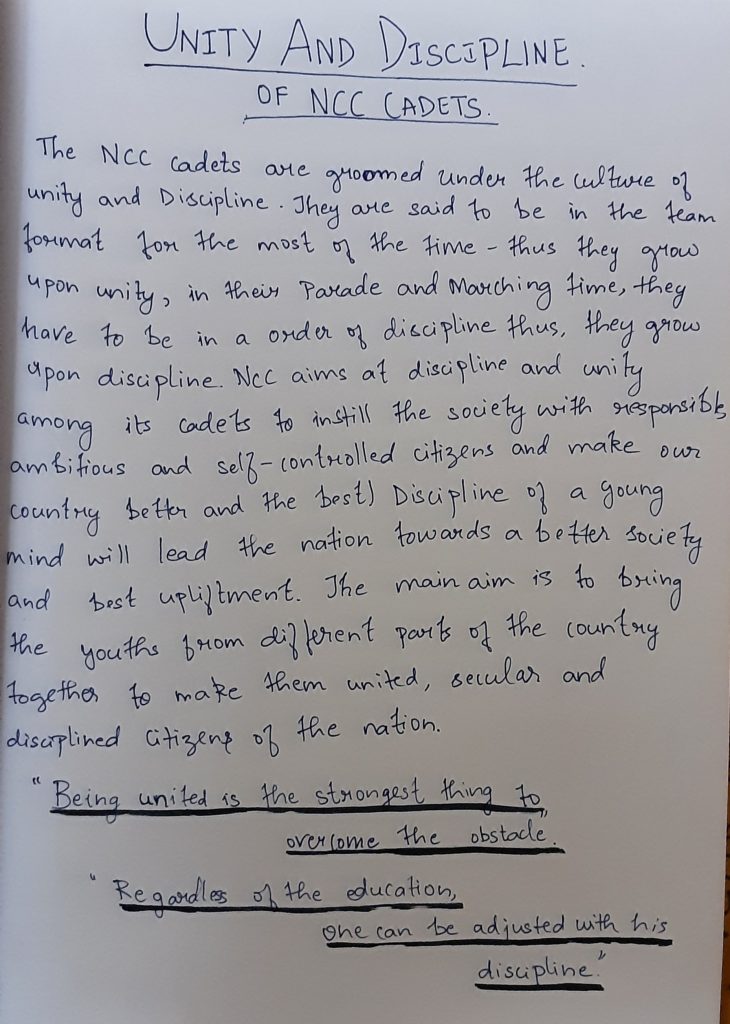 UNITY AND DISCIPLINE.
OF NCC CADETS.
The NCC cadets are groomed under the culture of
unity and Discipline. They are said to be in the team
format for the most of the time - thus they grow
upon unity, in their Parade and Marching time, they
have to be in a order of discipline thus, they grow
upon discipline. NCC aims at discipline and unity
among its cadets to instill the society with responsible,
ambitious and self-controlled citizens and make our
country better and the best) Discipline of a young
mind will lead the nation towards a better society
and best upliftment. The main aim is to bring
the youths from different parts of the country
together to make them united, secular and
disciplined citizens of the nation.
"Being united is the strongest thing to
overcome the obstacle."
"Regardless of the education,
one can be adjusted with his
discipline."